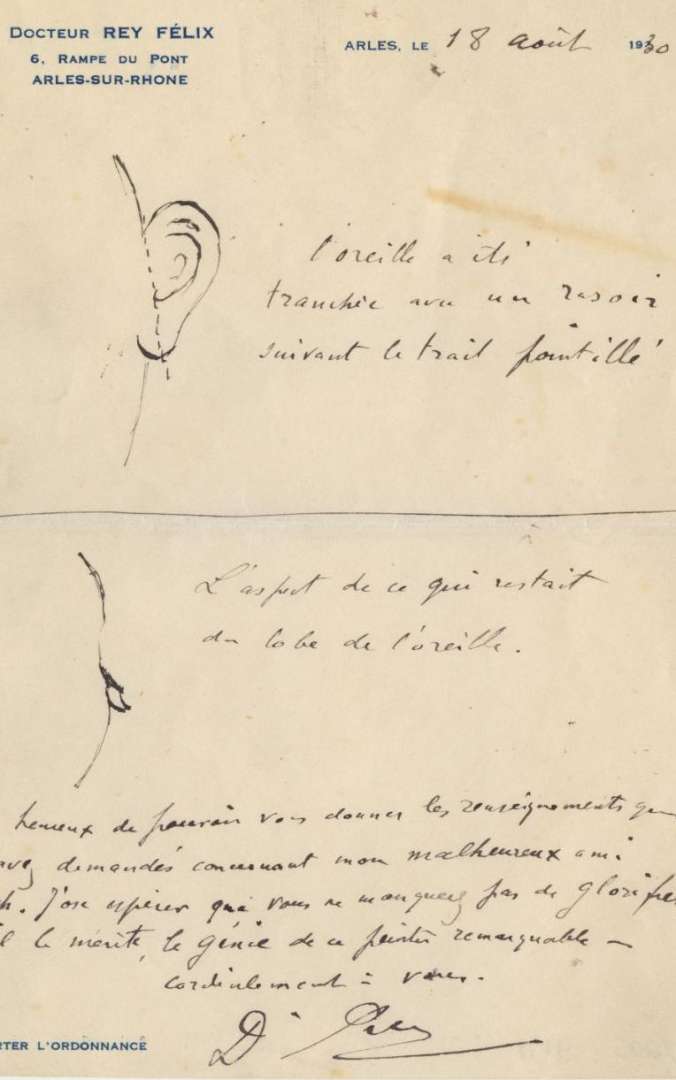 DOCTEUR REY FÉLIX
6, RAMPE DU PONT
ARLES-SUR-RHONE
ARLES, LE 18 août 1930
l'oreille a été
tranchée avec un rasoir
suivant le trait pointillé
L'aspect de ce qui restait
du lobe de l'oreille.
heureux de pouvoir vous donner les renseignements que
avez demandés concernant mon malheureux ami
h. J'ose espérer que vous ne manquerez pas de glorifier
il le mérite, le génie de ce peintre remarquable —
cordialement à vous.
Dr Rey
RTER L'ORDONNANCE